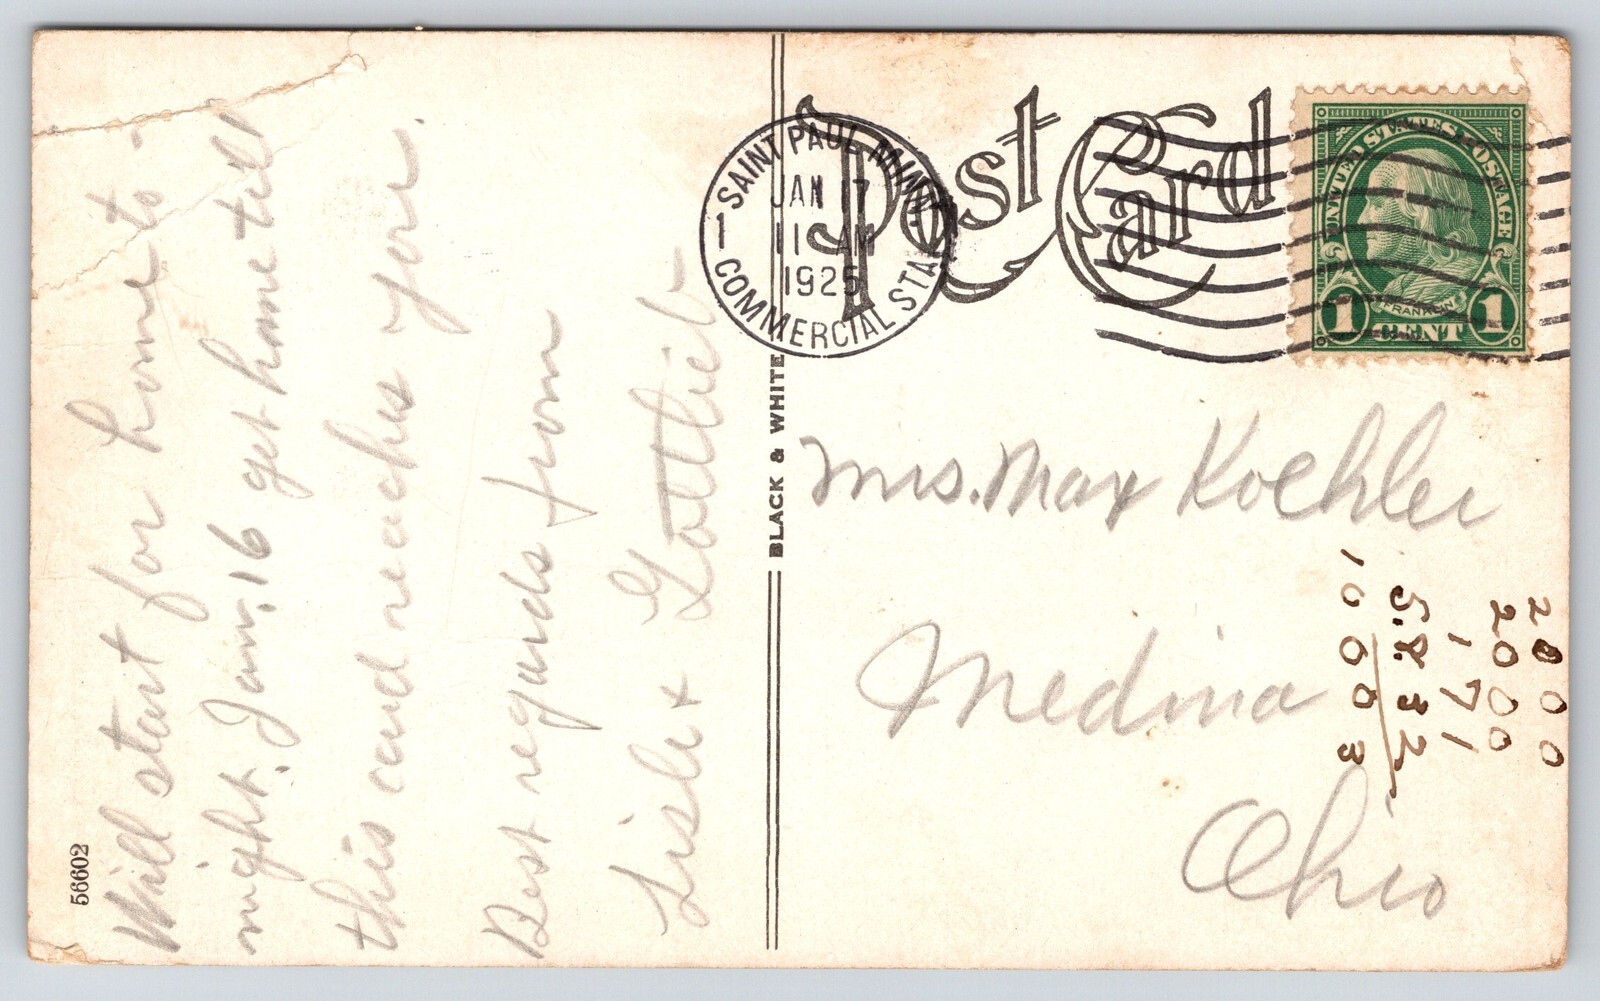 Will start for home to-
night. Jan. 16 get home till
this card reaches you.
Best regards from
& Gottlieb
56602
BLACK & WHITE
Post Card
SAINT PAUL, MINN.
JAN 17
11 AM
1925
1
COMMERCIAL STA.
UNITED STATES POSTAGE
FRANKLIN
1 CENT 1
Mrs. Max Koehler
Medina
Ohio
2000
2000
171
5.832
10003